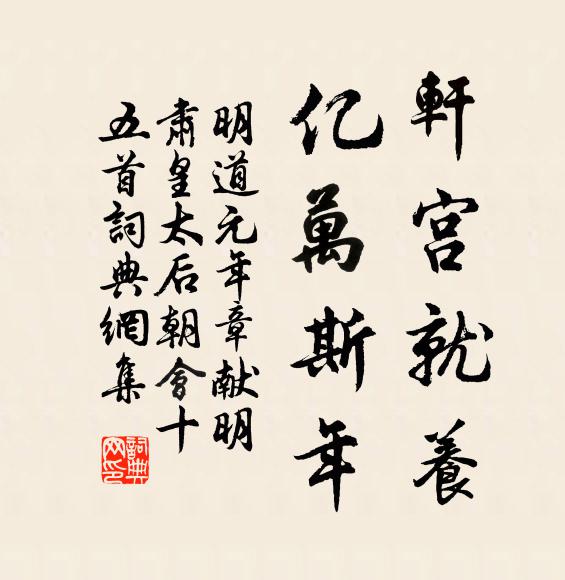 軒宮就養
亿萬斯年
明道元年章献明
肅皇太后朝會十
五首詞典網集
詞典网印